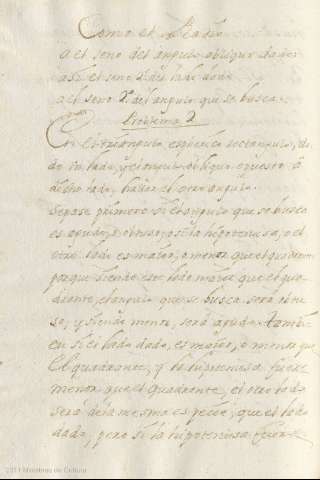 Como el Radio
a el seno del angulo obliquo dado
asi el seno 2 del lado dado
a el seno 2º del angulo que se busca.
Problema 2
En el triangulo esferico rectangulo, da
do un lado, y el angulo obliquo opuesto a
dicho lado, hallar el otro angulo.
Sepase primero si el angulo que se busca
es agudo, o obtuso, si la hipotenusa, o el
otro lado es maior, o menor que el quadrante
porque siendo este lado maior que el qua
drante, el angulo que se busca sera obtu
so, y siendo menor, será agudo. Tambi
en si el lado dado, es maior, o menor que
el quadrante, y la hipotenusa fuere
menor que el Quadrante, el otro lado
será de la mesma especie, que el lado
dado, pero si la hipotenusa fuere
2011 Ministerio de Cultura